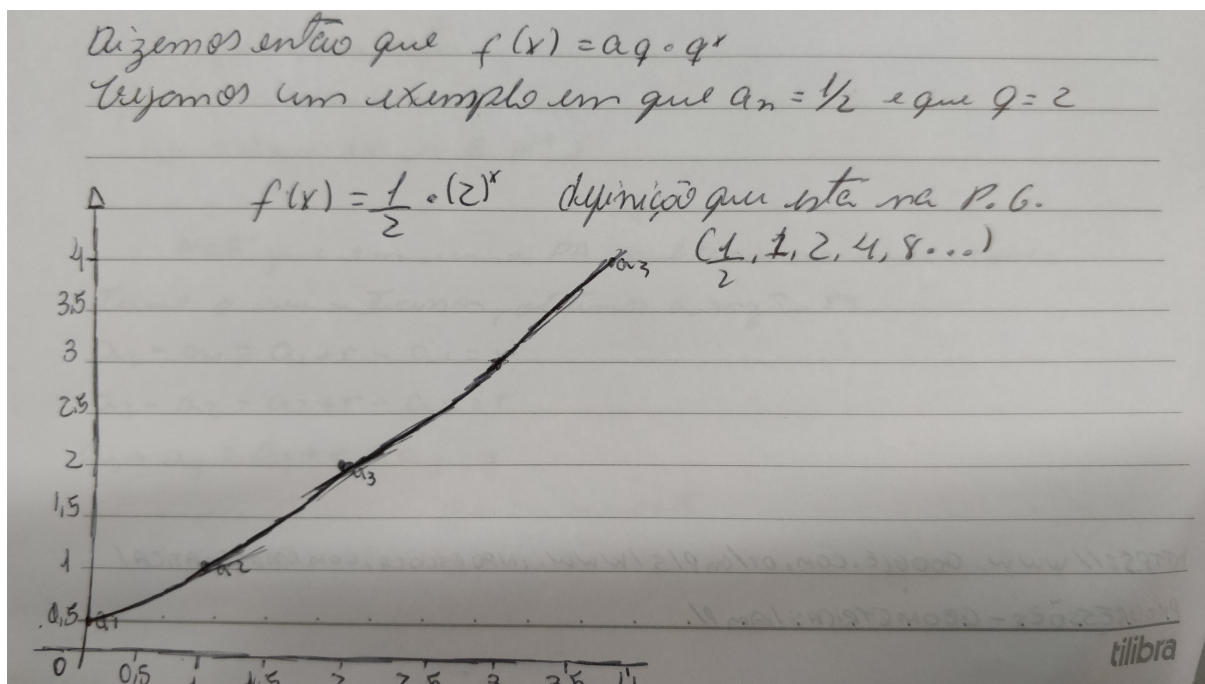 Dizemos então que f(x) = aq · q^x
Vejamos um exemplo em que an = 1/2 e que q = 2
f(x) = 1/2 · (2)^x definição que está na P.G.
(1/2, 1, 2, 4, 8...)
4
a3
3,5
3
2,5
2
a3
1,5
1
a2
0,5
a1
0 0,5 1 1,5 2 2,5 3 3,5
tilibra